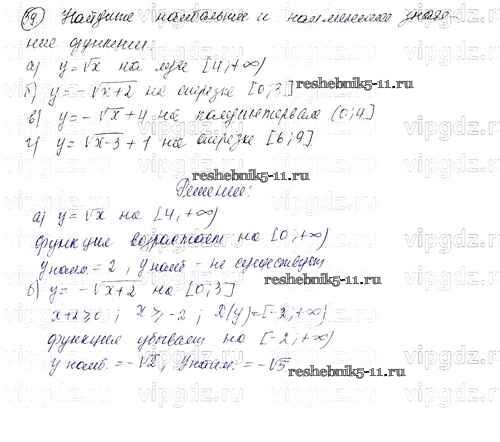 39) Найдите наибольшее и наименьшее значе-
ние функции:
а) y = √x на луче [4; +∞)
б) y = -√x+2 на отрезке [0; 3] reshebnik5-11.ru
в) y = -√x + 4 на полуинтервале (0; 4]
г) y = √x-3 + 1 на отрезке [6; 9]
reshebnik5-11.ru
Решение:
а) y = √x на [4, +∞)
функция возрастает на [0; +∞)
y наим. = 2, y наиб - не существует
б) y = -√x+2 на [0; 3]
x+2 ≥ 0; x ≥ -2; D(y) = [-2; +∞)
функция убывает на [-2; +∞)
y наиб. = -√2, y наим. = -√5
reshebnik5-11.ru
vipgdz.ru